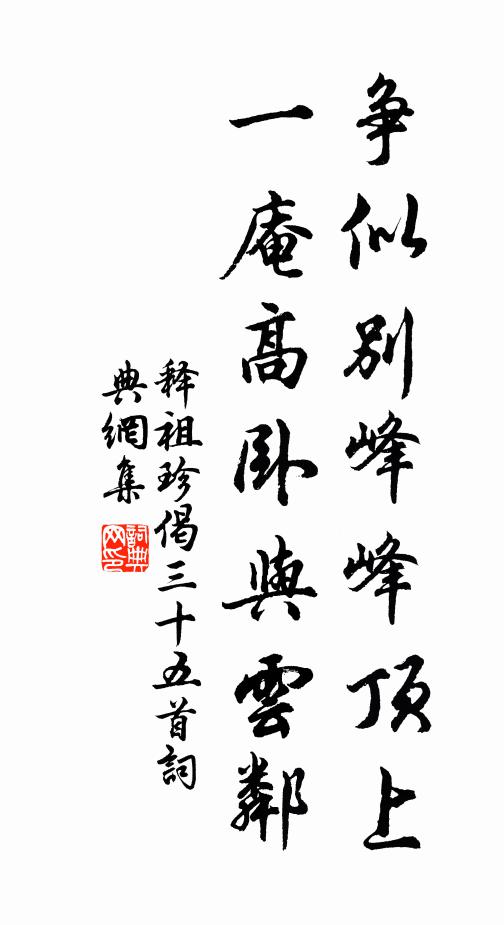 争似別峰峰顶上
一庵高卧與雲鄰
释祖珍偈三十五首詞
典網集
詞典网印